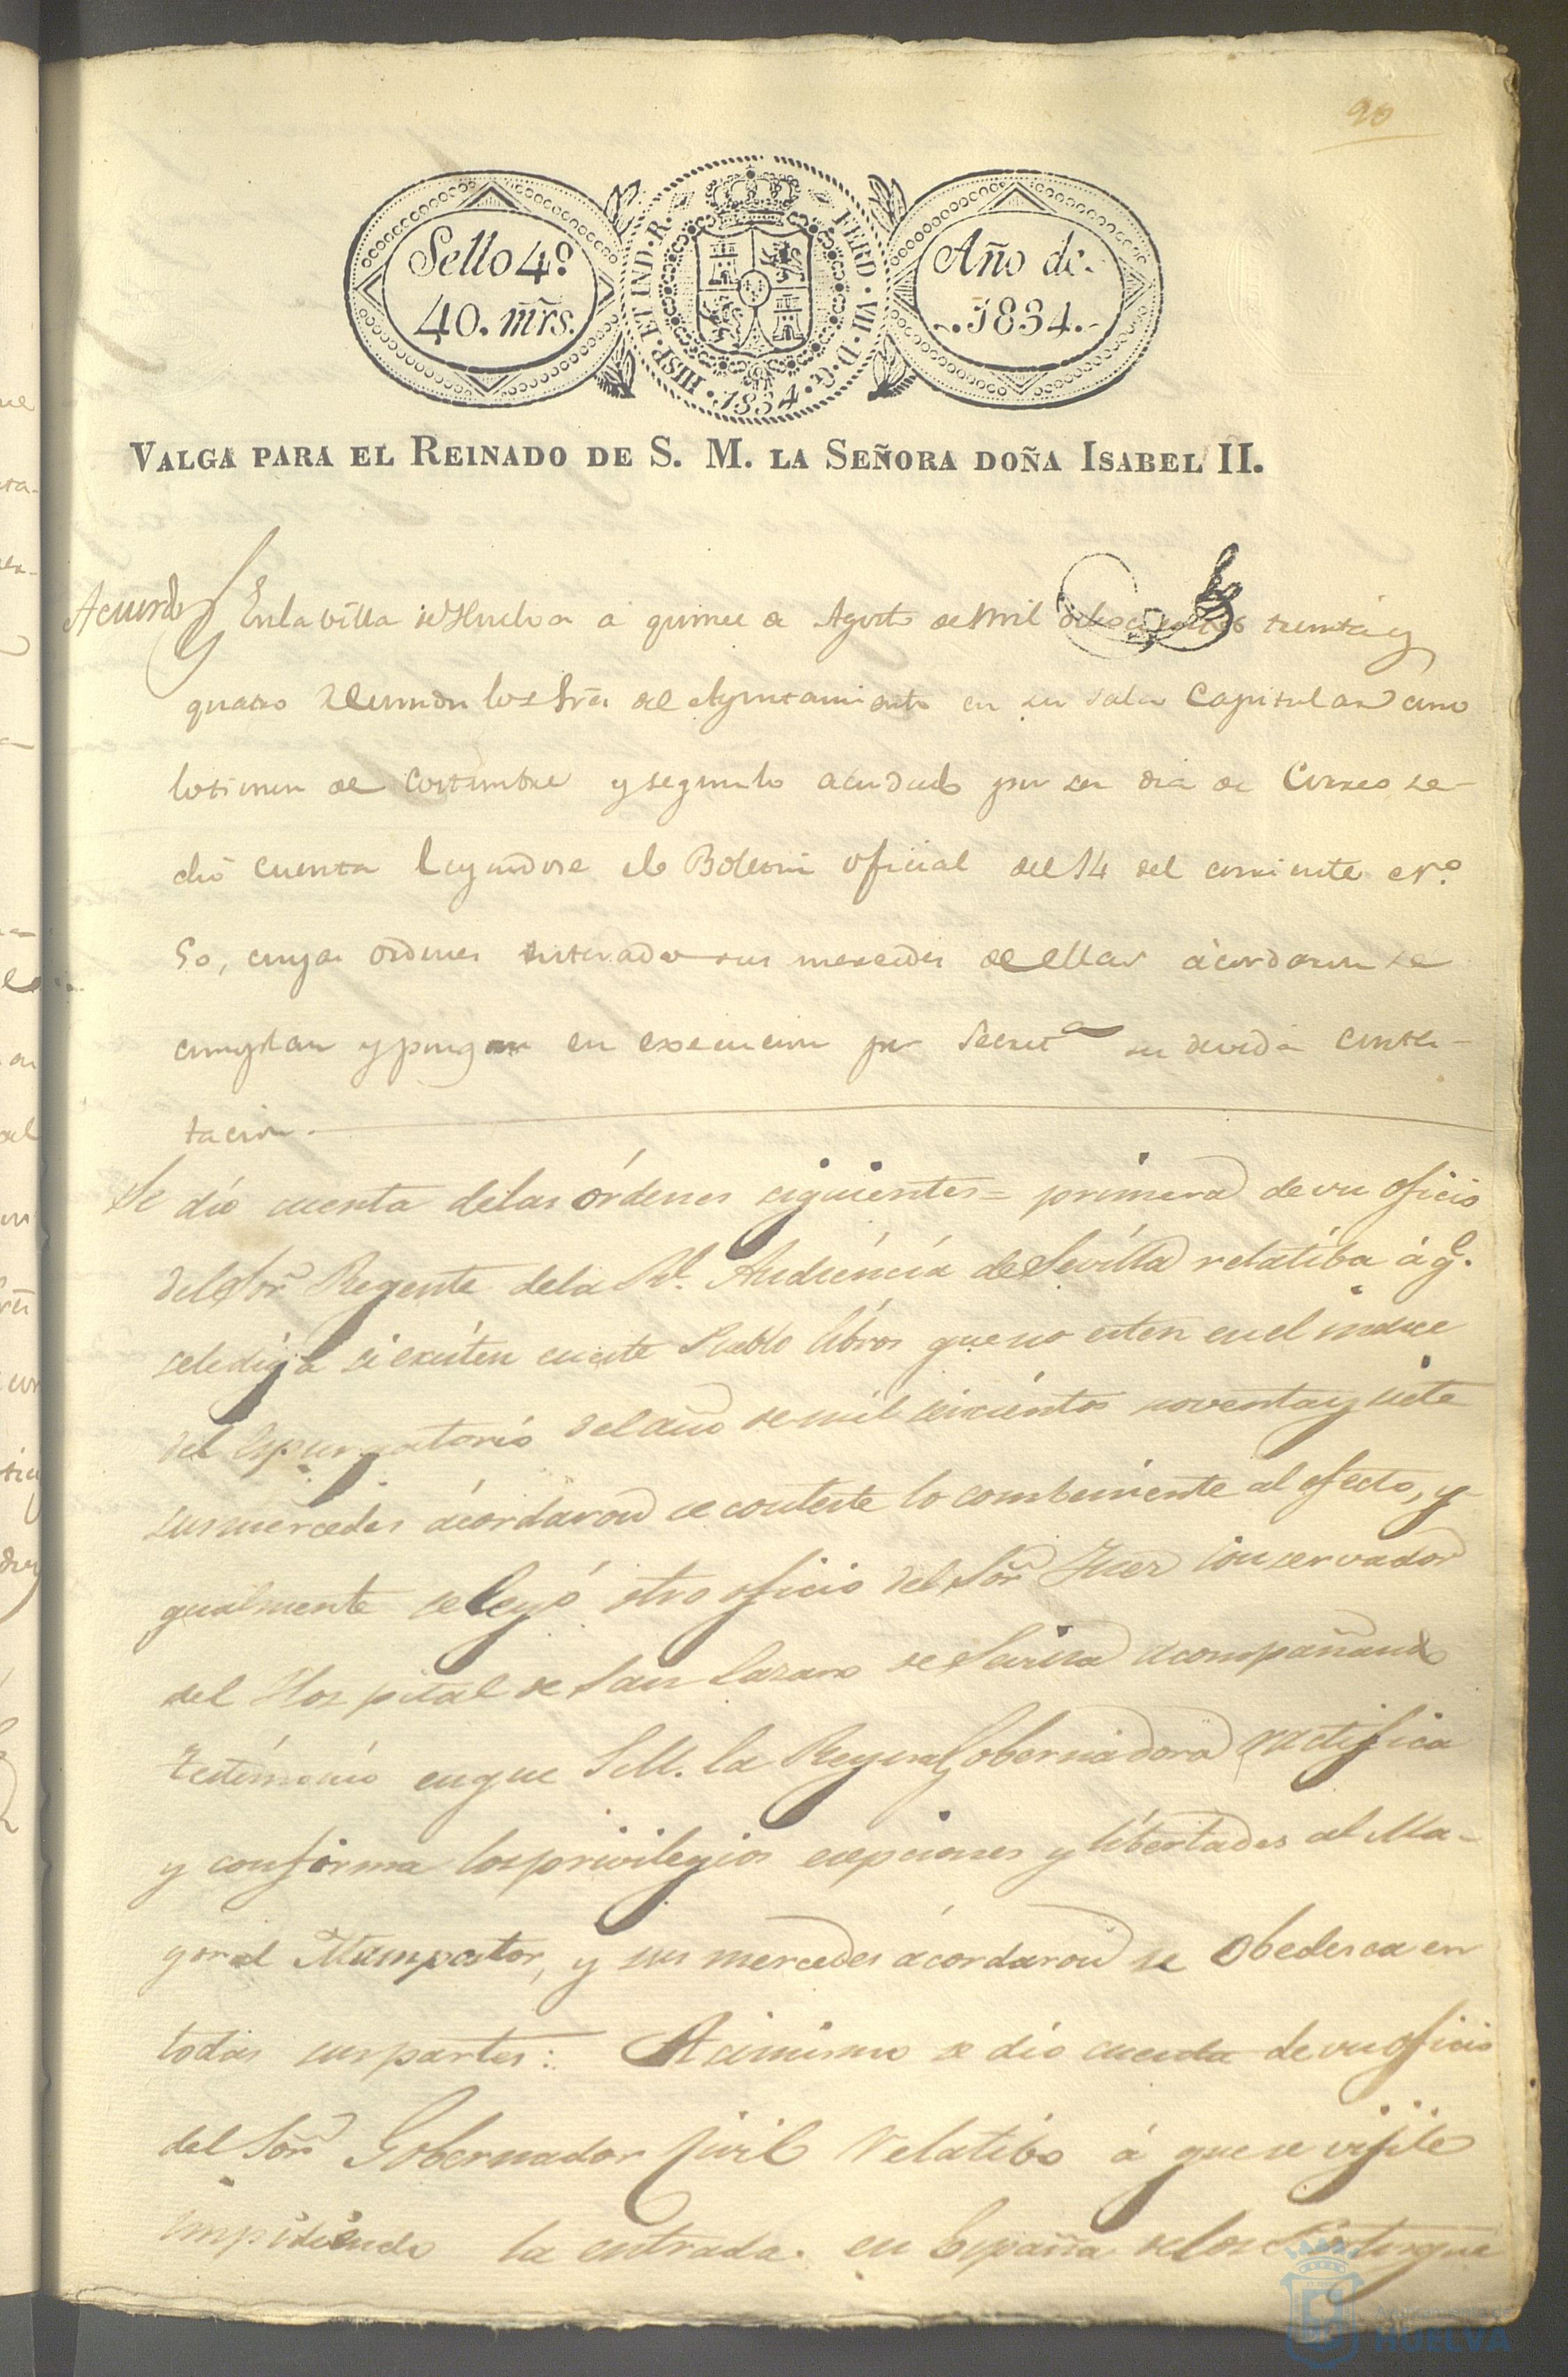 90
Sello 4º
40. mrs.
HISP. ET IND. R. FERD. VII. D. G. 1834.
Año de
1834.
VALGA PARA EL REINADO DE S. M. LA SEÑORA DOÑA ISABEL II.
Acuerdo
En la villa de Huelva a quince de Agosto de Mil ochocientos treinta y
quatro reunidos los Sres del Ayuntamiento en su Sala Capitular como
lo tienen de costumbre y segun lo acordado por ser dia de Correo se
dio cuenta leyendose el Boletin oficial del 14 del corriente nº
50, cuyas ordenes enterados sus mercedes de ellas acordaron se
cumplan y pongan en execucion por Secretª su devida contes-
tacion.
Se dió cuenta delas órdenes siguientes = primera de un oficio
del Sor Regente dela Rl. Audiéncia de Sevilla relatiba á q.e
sele diga si exísten en este Pueblo libros que no esten en el indice
del espurgatorio del año de mil seiscientos noventa y siete
sus mercedes acordaron se conteste lo combeniente al efecto, y
gualmente se leyó otro oficio del Sor Juez Conservador
del Hospital de San Lazaro de Sevilla acompañando
testimonio en que S.M. la Reyna Gobernadora ratifica
y confirma los privilegios esepciones y libertades al Ma-
yoral Mampastor, y sus mercedes acordaron se obedesca en
todas sus partes: Acimismo se dió cuenta de un oficio
del Sor Gobernador Civil relatibo á que se vijile
impidiendo la entrada en España de los Portugue
Ayuntamiento de
HUELVA